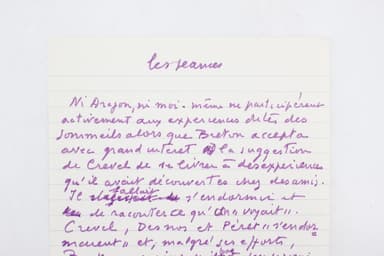 les seances
Ni Aragon, ni moi-même ne participèrent
activement aux experiences dites des
sommeils alors que Breton accepta
avec grand interet la suggestion
de Crevel de se livrer à des experiences
qu'il avait découvertes chez des amis.
Il fallait s'endormir et
de raconter ce qu'on voyait".
Crevel, Desnos et Péret "s'endor
maient" et, malgré ses efforts,